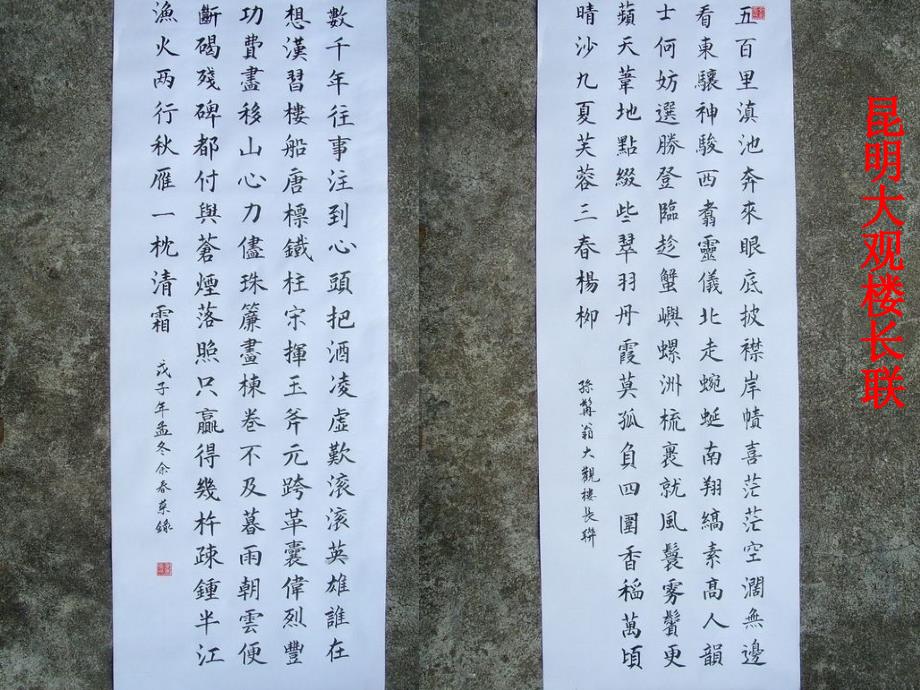 昆明大观楼长联
五百里滇池奔來眼底披襟岸幘喜茫茫空濶無邊
看東驤神駿西翥靈儀北走蜿蜒南翔縞素高人韻
士何妨選勝登臨趁蟹嶼螺洲梳裹就風鬟霧鬢更
蘋天葦地點綴些翠羽丹霞莫孤負四圍香稻萬頃
晴沙九夏芙蓉三春楊柳
孫髯翁大觀樓長聯
數千年往事注到心頭把酒凌虛歎滚滚英雄誰在
想漢習樓船唐標鐵柱宋揮玉斧元跨革囊偉烈豐
功費盡移山心力儘珠簾畫棟卷不及暮雨朝雲便
斷碣殘碑都付與蒼煙落照只贏得幾杵疎鍾半江
漁火两行秋雁一枕清霜
戊子年孟冬余春英錄